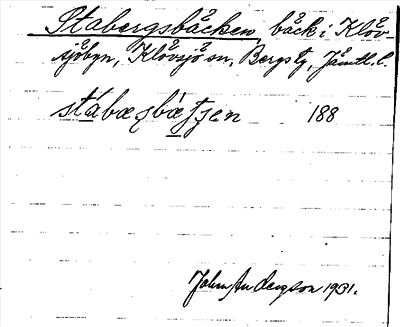 Stabergsbäcken, bäck i Klöv-
sjöbyn, Klövsjö sn, Bergs tg, Jämtl. l.
188
John Andersson 1931.